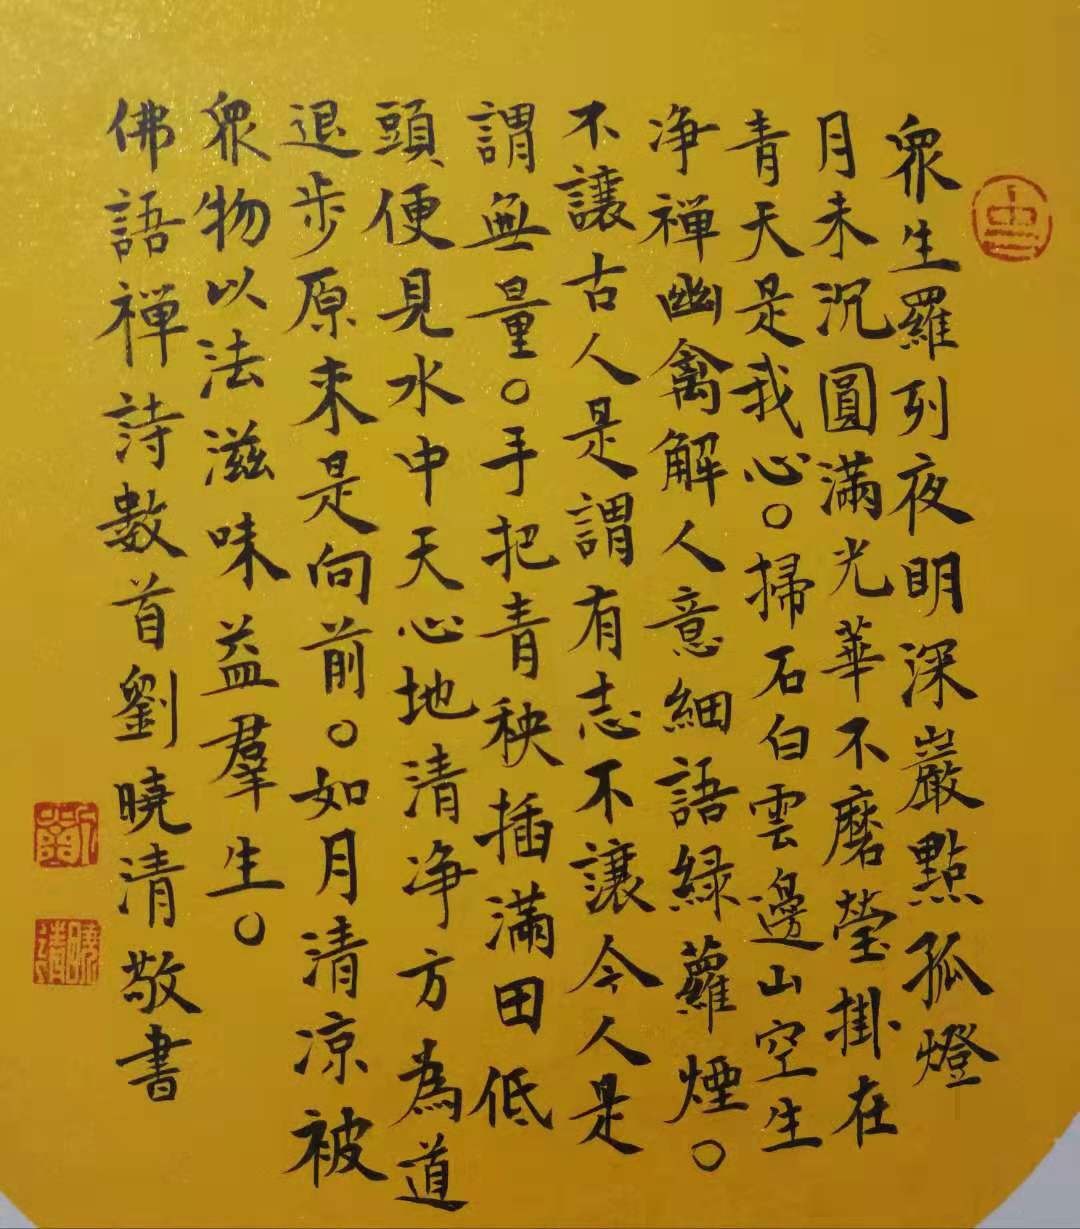 眾生羅列夜明深巖點孤燈
月未沉圓滿光華不磨瑩掛在
青天是我心。掃石白雲邊山空生
净禪幽禽解人意細語綠蘿煙。
不讓古人是謂有志不讓今人是
謂無量。手把青秧插滿田低
頭便見水中天心地清净方為道
退步原來是向前。如月清凉被
眾物以法滋味益羣生。
佛語禪詩數首劉曉清敬書
劉
曉清